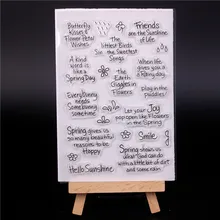 Butterfly
Kisses &
Flower Petal
Wishes
Friends
are the Sunshine
of Life
The
littlest Birds
Sing the
Sweetest
Songs
A kind
word is
like a
Spring Day
When life
gives you
rain
play in the
puddles
The
Earth
Giggles in
Flowers
Every Bunny
needs
Some Bunny
Sometime
Let your Joy
Pop open
like Flowers
in the Spring
Spring gives us
so many
beautiful
reasons to be
Happy
Smile
Spring shows us
what God can do
with a little bit of dirt
and some rain
Hello Sunshine